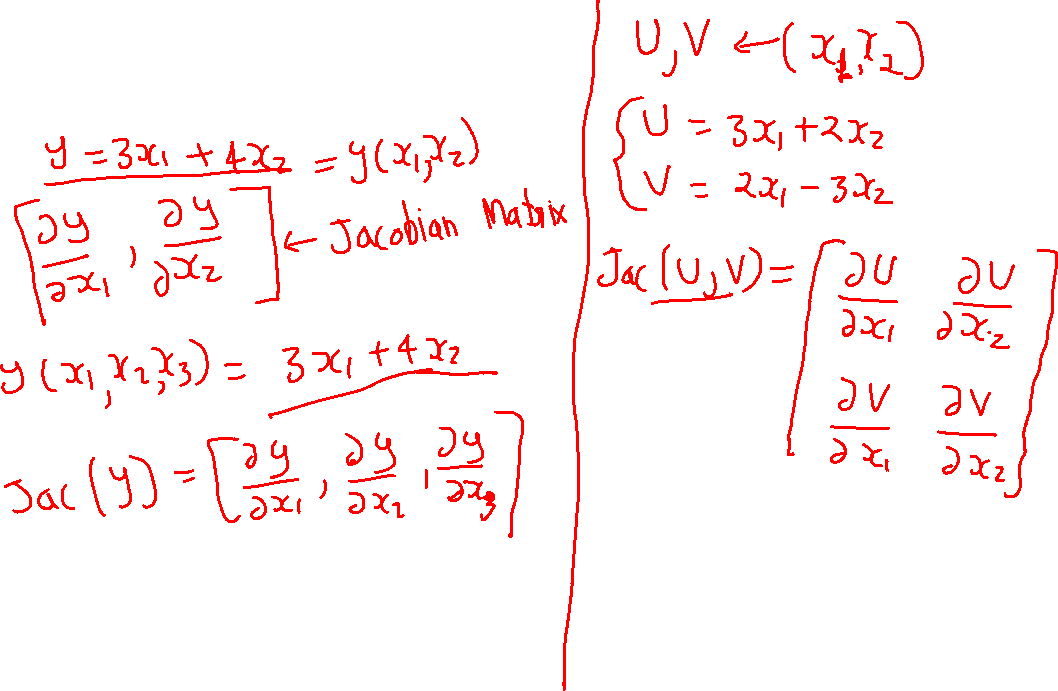 y = 3x₁ + 4x₂ = y(x₁,x₂)
[∂y/∂x₁ , ∂y/∂x₂] ← Jacobian Matrix
y(x₁,x₂,x₃) = 3x₁ + 4x₂
Jac(y) = [∂y/∂x₁ , ∂y/∂x₂ , ∂y/∂x₃]
U,V ← (x₁,x₂)
{ U = 3x₁ + 2x₂
V = 2x₁ − 3x₂
Jac(U,V) = [ ∂U/∂x₁ ∂U/∂x₂
∂V/∂x₁ ∂V/∂x₂ ]